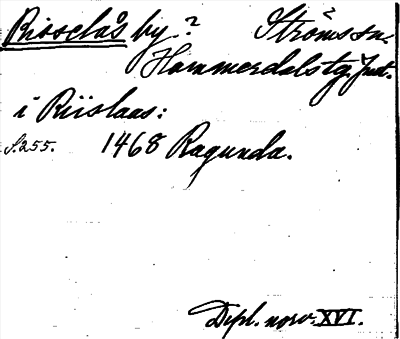 Risselås by? Ströms sn.
Hammerdals tg. Jmt.
i Riislaas:
S.255. 1468 Ragunda.
Dipl. norv. XVI.